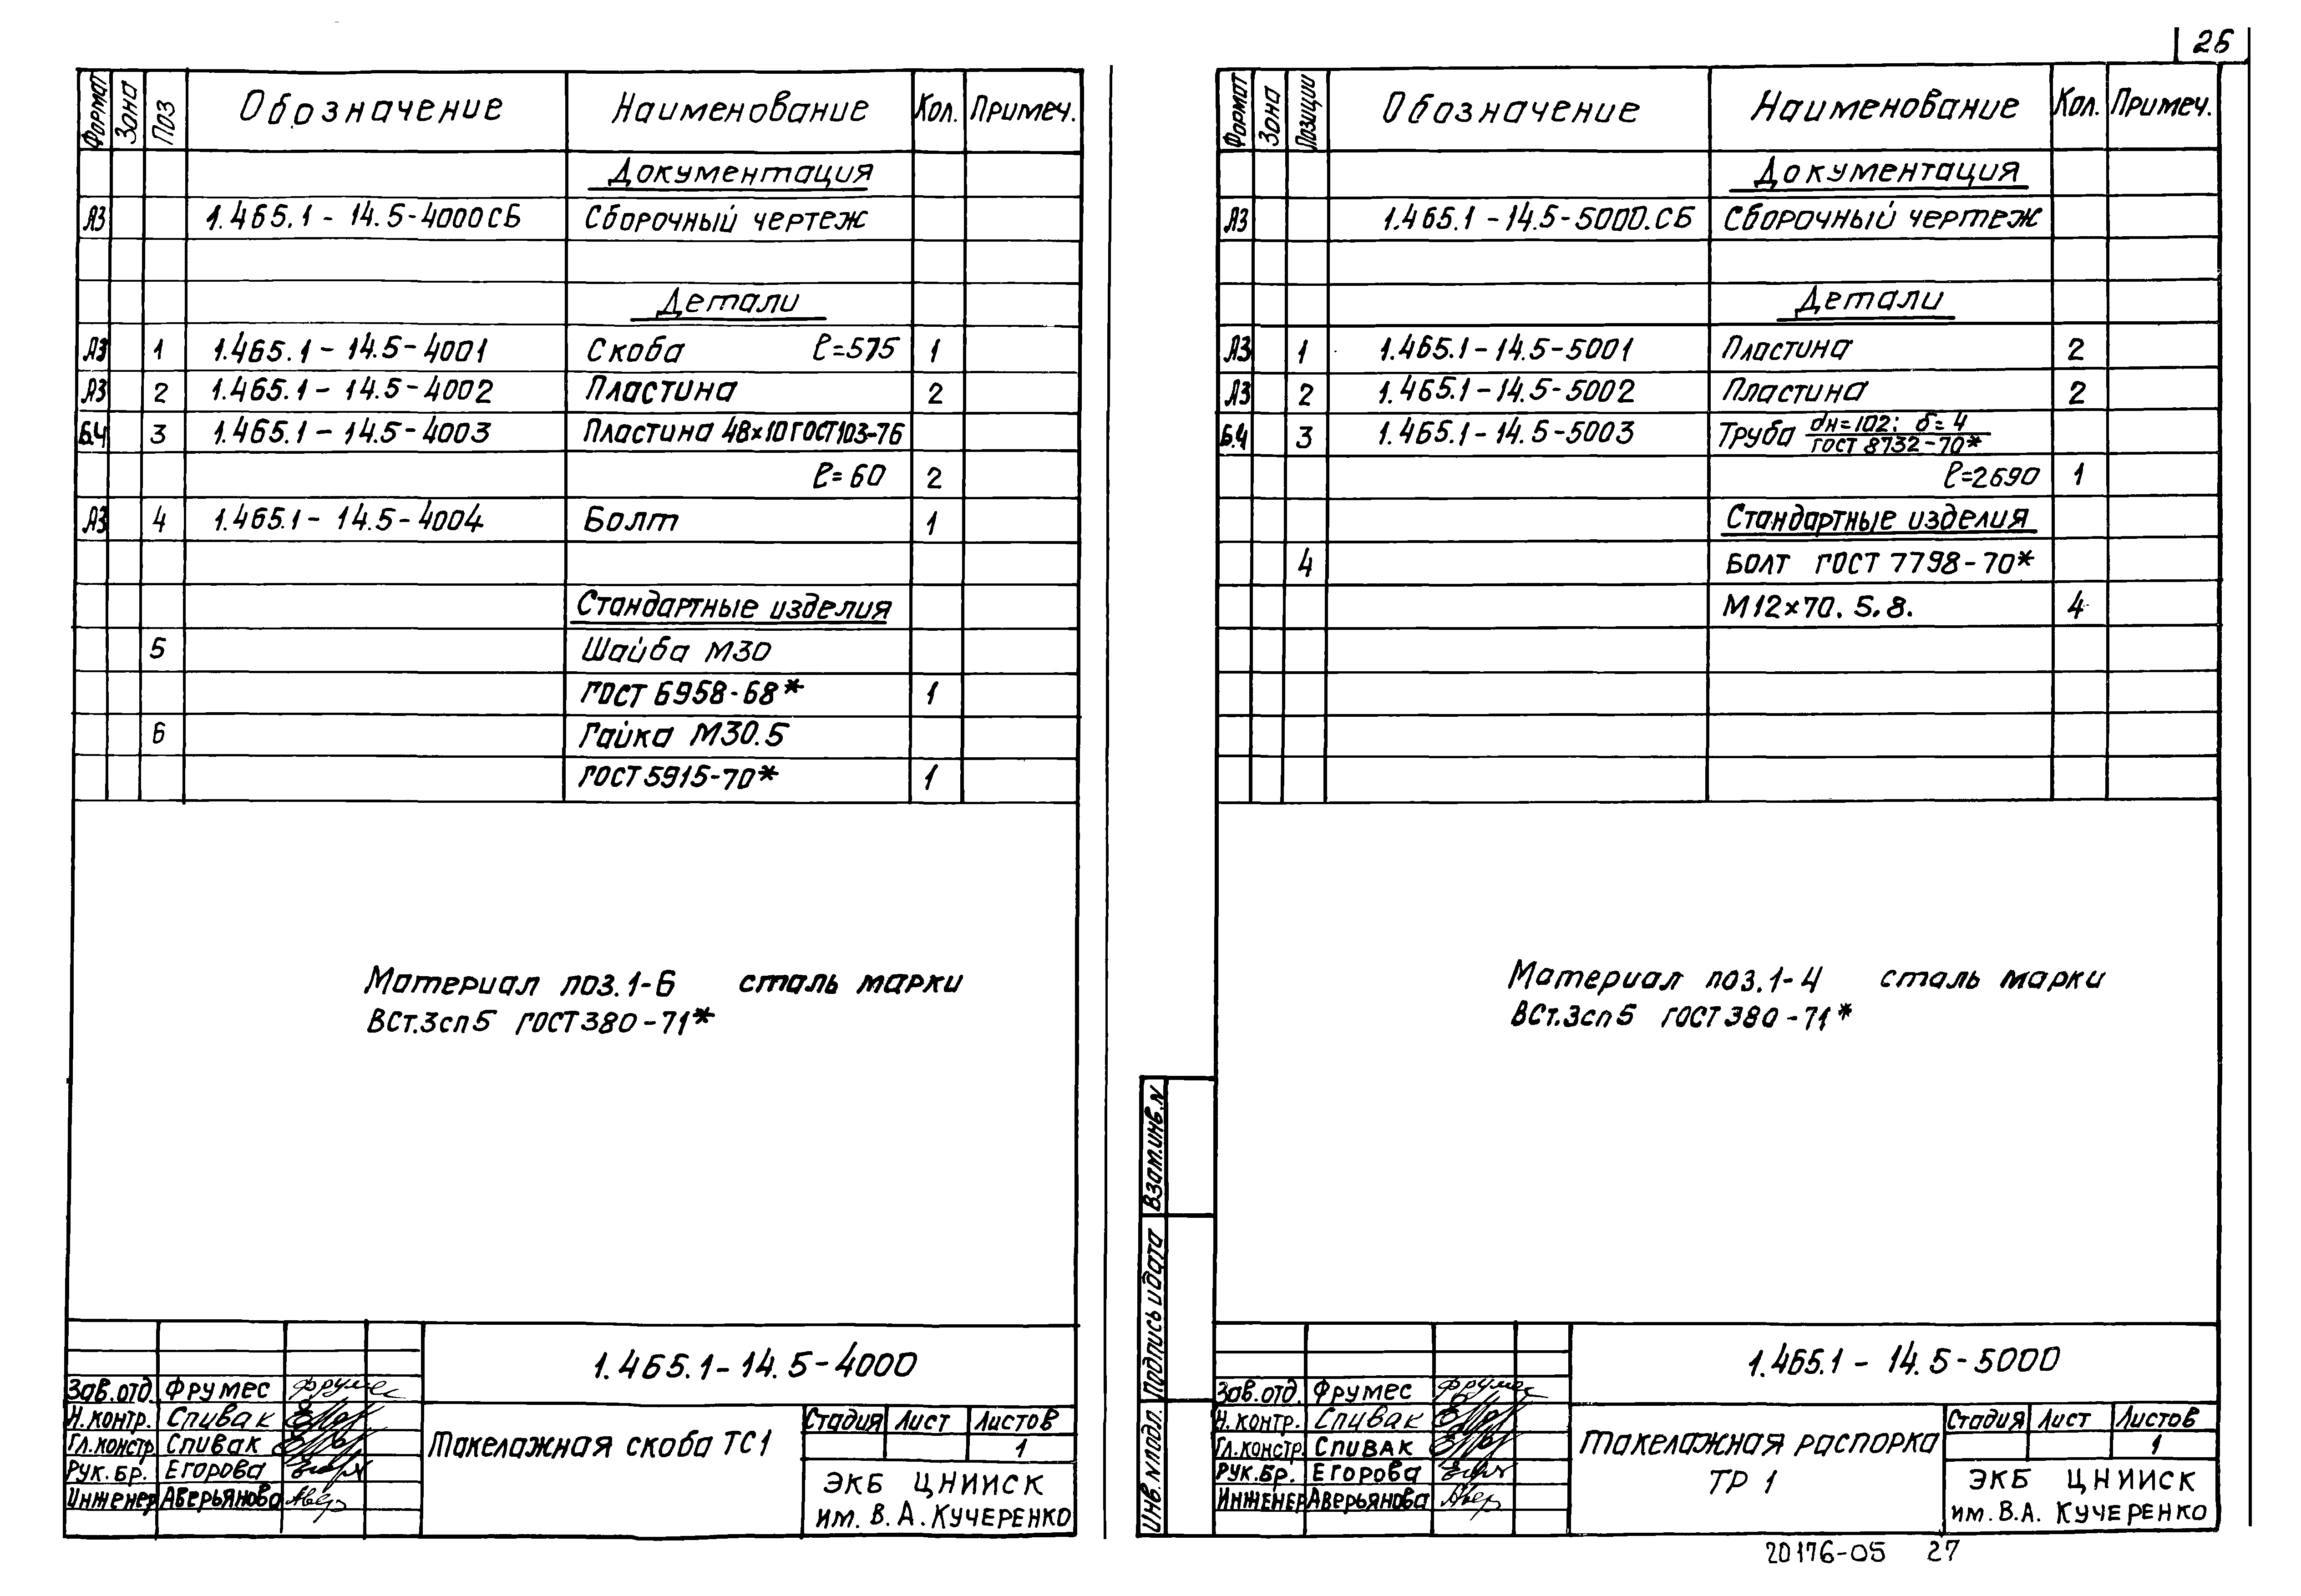 26
Формат Зона Поз Обозначение Наименование Кол. Примеч.
Документация
А3 1.465.1-14.5-4000СБ Сборочный чертеж
Детали
А3 1 1.465.1-14.5-4001 Скоба ℓ=575 1
А3 2 1.465.1-14.5-4002 Пластина 2
Б.Ч 3 1.465.1-14.5-4003 Пластина 48×10 ГОСТ103-76
ℓ=60 2
А3 4 1.465.1-14.5-4004 Болт 1
Стандартные изделия
5 Шайба М30
ГОСТ 6958-68* 1
6 Гайка М30.5
ГОСТ 5915-70* 1
Материал поз.1-6 сталь марки
ВСт.3сп5 ГОСТ380-71*
1.465.1-14.5-4000
Зав.отд. Фрумес
Н.контр. Спивак
Гл.констр. Спивак
Рук.бр. Егорова
Инженер Аверьянова
Такелажная скоба ТС1
Стадия Лист Листов
1
ЭКБ ЦНИИСК
им. В.А. Кучеренко
Формат Зона Позиции Обозначение Наименование Кол. Примеч.
Документация
А3 1.465.1-14.5-5000.СБ Сборочный чертеж
Детали
А3 1 1.465.1-14.5-5001 Пластина 2
А3 2 1.465.1-14.5-5002 Пластина 2
Б.Ч 3 1.465.1-14.5-5003 Труба dн=102; δ=4
ГОСТ 8732-70*
ℓ=2690 1
Стандартные изделия
4 Болт ГОСТ 7798-70*
М12×70. 5.8. 4
Материал поз.1-4 сталь марки
ВСт.3сп5 ГОСТ380-71*
Взам.инв.N
Подпись и дата
Инв.N подл.
1.465.1-14.5-5000
Зав.отд. Фрумес
Н.контр. Спивак
Гл.констр. Спивак
Рук.бр. Егорова
Инженер Аверьянова
Такелажная распорка
ТР 1
Стадия Лист Листов
1
ЭКБ ЦНИИСК
им. В.А. Кучеренко
20176-05 27